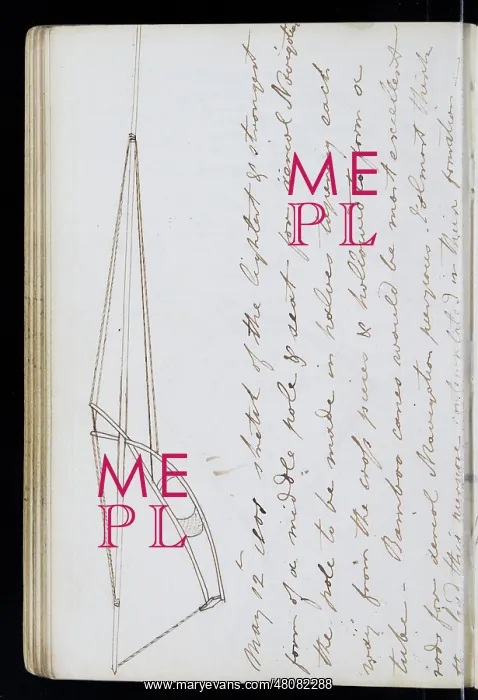 May 12th 1808 sketch of the lightest & strongest
form of a middle pole & seat for aerial Navigation
the pole to be made in halves tapering each
way from the cross pieces & hollowed to form a
tube - Bamboo canes would be most excellent
rods for aerial Navigation purposes. I almost think
this purpose contemplated in their formation -
ME
PL
ME
PL
www.maryevans.com/48082288